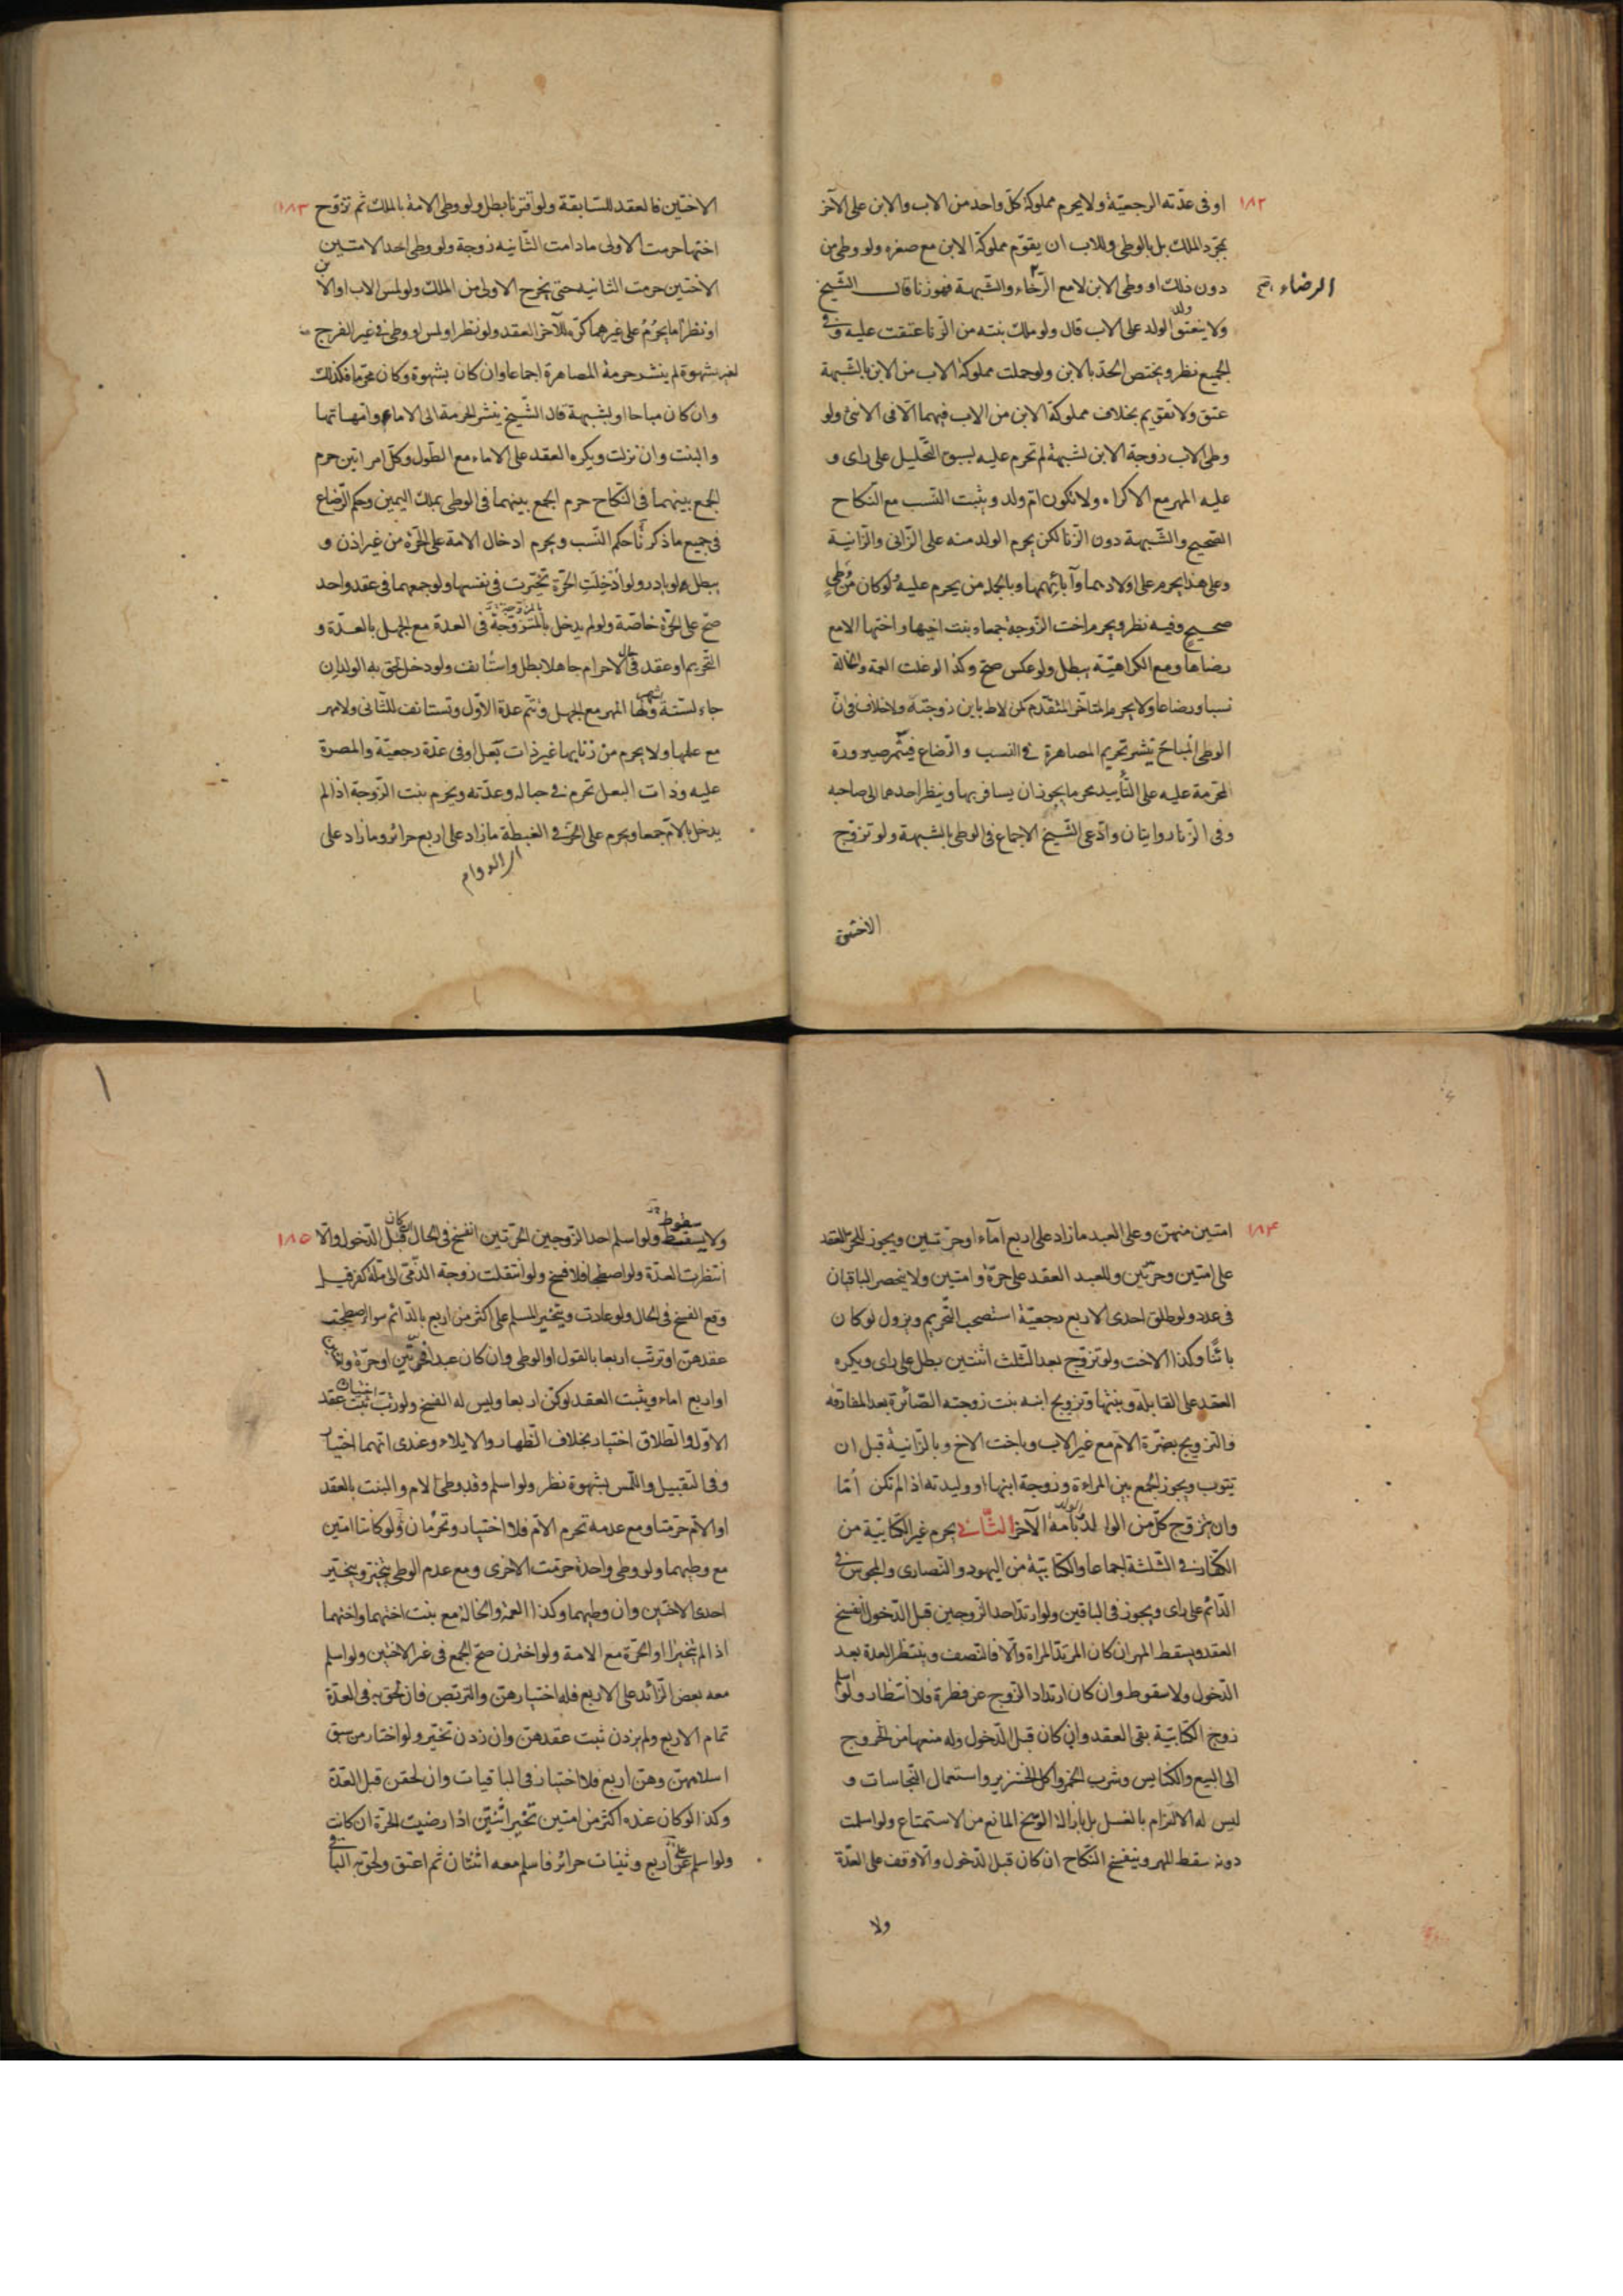 ١٨٢
او فى عدّته الرجعيّة ولا يحرم مملوكة كلّ واحد من الاب والابن على الآخر
بمجرّد الملك بل بالوطى وللاب ان يقوّم مملوكة الابن مع صغره ولو وطى من
دون ذلك او وطى الابن لا مع الرّخاء والشّبهة فهو زنا قال الشّيخ
الرضاء صح
ولا ينعتق ولد الولد على الاب قال ولو ملك بنته من الزّنا عتقت عليه وفى
الجميع نظر ويختص الحدّ بالابن ولو حملت مملوكة الاب من الابن بالشّبهة
عتق ولا تقويم بخلاف مملوكة الابن من الاب فيهما الّا فى الانثى ولو
وطى الاب زوجة الابن لشبهة لم تحرم عليه لسبق التّحليل على راى و
عليه المهر مع الاكراه ولا تكون امّ ولد ويثبت النّسب مع النّكاح
الصّحيح والشّبهة دون الزّنا لكن يحرم الولد منه على الزّانى والزّانية
وعلى هذا يحرم على اولادهما وآبائهما وبالجملة من يحرم عليه لو كان من وطى
صحيح وفيه نظر ويحرم اخت الزّوجة جمعا وبنت اخيها واختها الا مع
رضاها ومع الكراهيّة يبطل ولو عكس صحّ وكذا لو دخلت العمة والخالة
نسبا ورضاعا ولا يحرم المتاخّر المتقدّم كمن لاط بابن زوجته ولا خلاف فى انّ
الوطى المباح ينشر تحريم المصاهرة فى النسب والرّضاع فيثمر صيرورة
المحرّمة عليه على التّأييد محرما يجوز ان يسافر بها وينظر احدهما الى صاحبه
وفى الزّنا روايتان وادّعى الشّيخ الاجماع فى الوطى بالشّبهة ولو تزوّج
الاختين
١٨٣
الاختين فالعقد للسّابقة ولو اقترنا بطل ولو وطى الامة بالملك ثم تزوّج
اختها حرمت الاولى ما دامت الثّانيه زوجة ولو وطى احد الامتين
الاختين حرمت الثانيه حتى يخرج الاولى من الملك ولو لمس الاب او الابن
او نظرا ما يحرُمُ على غيرهما كره للآخر العقد ولو نظر او لمس او وطى فى غير الفرج
لغير شهوة لم ينشر حرمة المصاهرة اجماعا وان كان بشهوة وكان محرّما فكذلك
وان كان مباحا او بشبهة قال الشّيخ ينشر الحرمة الى الاماء وامّهاتها
والبنت وان نزلت ويكره العقد على الاماء مع الطّول وكلّ امراتين حرم
الجمع بينهما فى النّكاح حرم الجمع بينهما فى الوطى بملك اليمين وحكم الرّضاع
فى جميع ما ذكرنا حكم النّسب ويحرم ادخال الامة على الحرّة من غير اذن و
يبطل لو بادر ولو اُدْخِلَتِ الحرّة تخيّرت فى نفسها ولو جمعهما فى عقد واحد
صحّ على الحرّة خاصّة ولو لم يدخل بالمتزوّجة فى العدة مع الجهل بالعدّة و
التّحريم او عقد فى حال الاحرام جاهلا بطل واستأنف ولو دخل لحق به الولد ان
جاء لستّة اشهر ولها المهر مع الجهل وتتم عدة الاوّل وتستانف للثّانى ولا مهر
مع علمها ولا يحرم من زنا بها غير ذات بعل او فى عدّة رجعيّة والمصرة
عليه وذات البعل تحرم فى حباله وعدّته ويحرم بنت الزّوجة اذا لم
يدخل بالامّ جمعا ويحرم على الحرّ فى الغبطة ما زاد على اربع حرائر وما زاد على
اى الدوام
١٨۴
امتين منهنّ وعلى العبد ما زاد على اربع آماء او حرّتين ويجوز للحرّ العقد
على امتين وحرّتين وللعبد العقد على حرّة وامتين ولا ينحصر الباقيان
فى عدد ولو طلق احدى الاربع رجعيّة استصحب التّحريم ويزول لو كان
بائنًا وكذا الاخت ولو تزوّج بعد الثّلث اثنتين بطل على راى ويكره
العقد على القابلة وبنتها وتزويج ابنه بنت زوجته الصّائرة بعد المفارقة
والتزويج بضرّة الامّ مع غير الاب وباخت الاخ وبالزّانية قبل ان
يتوب ويجوز الجمع بين المراءة وزوجة ابنها او وليدته اذا لم تكن اُمّا
وان يتزوّج كلّ من الوالد والولد بامة الآخر الثّانى يحرم غير الكتابيّة من
الكفّار فى الثّلثة اجماعا والكتابيّة من اليهود والنّصارى والمجوس فى
الدّائم على راى ويجوز فى الباقين ولو ارتدّ احد الزّوجين قبل الدّخول انفسخ
العقد ويسقط المهر ان كان المرتدّ المراة والّا فالنصف وينتظر العدة بعد
الدّخول ولا سقوط وان كان ارتداد الزّوج عن فطرة فلا انتظار ولو اسلم
زوج الكتابيّة بقى العقد وان كان قبل الدّخول وله منعها من الخروج
الى البيع والكنايس وشرب الخمر واكل الخنزير واستعمال النّجاسات و
ليس له الالزام بالغسل بل بازالة الوسخ المانع من الاستمتاع ولو اسلمت
دونه سقط المهر وينفسخ النّكاح ان كان قبل الدّخول والّا وقف على العدّة
ولا
١٨٥
ولا يسقط سقوط ولو اسلم احد الزّوجين الحرّتين انفسخ فى الحال ان كان قبل الدّخول والّا
انتظرت العدّة ولو اصطحبا فلا فسخ ولو انتقلت زوجة الذّمّى الى ملّة كفر قيل
وقع الفسخ فى الحال ولو عادت ويتخيّر المسلم على اكثر من اربع بالدّائم سواء اصطحب
عقدهنّ او ترتّب اربعا بالقول او الوطى وان كان عبدا فحرّتين او حرّة وامتين
او اربع اماء ويثبت العقد لو كنّ اربعا وليس له الفسخ ولو رتّب اختيار ثبت عقد
الاوّل والطّلاق اختيار بخلاف الظّهار والايلاء وعندى انهما اختيار
وفى التّقبيل واللّمس بشهوة نظر ولو اسلم وقد وطئ الام والبنت بالعقد
او الامّ حرمتا ومع عدمه تحرم الامّ فلا اختيار وتحرُمان لو كانتا امتين
مع وطيهما ولو وطى واحدة حرمت الاخرى ومع عدم الوطى يتخيّر ويتخيّر
احدى الاختين وان وطيهما وكذا العمّة والخالة مع بنت اختهما واختهما
اذا لم يتخيرا او الحرّة مع الامة ولو اخترن صحّ الجمع فى غير الاختين ولو اسلم
معه بعض الزّائد على الاربع فله اختيارهنّ والتربّص فان لحق به فى العدّة
تمام الاربع ولم يزدن ثبت عقدهنّ وان زدن تخيّر ولو اختار من سبق
اسلامهنّ وهنّ اربع فلا اختيار فى الباقيات وان لحقن قبل العدّة
وكذا لو كان عنده اكثر من امتين تخيّر اثنتين اذا رضيت الحرّة ان كانت
ولو اسلم عن اربع وثنيات حرائر فاسلم معه اثنتان ثم اعتق ولحق به البا